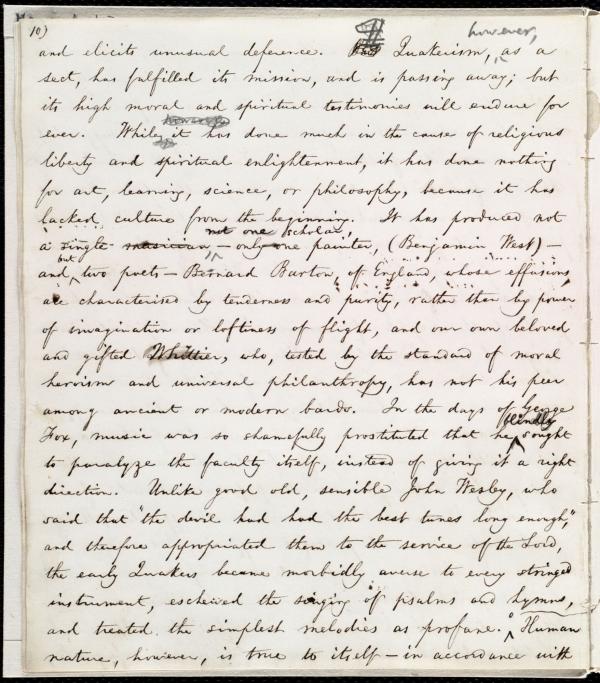 10)
however,
and elicits unusual deference. Quakerism, as a
sect, has fulfilled its mission, and is passing away; but
its high moral and spiritual testimonies will endure for
ever. While it has done much in the cause of religious
liberty and spiritual enlightenment, it has done nothing
for art, learning, science, or philosophy, because it has
lacked culture from the beginning. It has produced not
not one scholar,
a single musician – only one painter, (Benjamin West) –
but
and two poets – Bernard Barton, of England, whose effusions
are characterised by tenderness and purity, rather than by power
of imagination or loftiness of flight, and our own beloved
and gifted Whittier, who, tested by the standard of moral
heroism and universal philanthropy, has not his peer
among ancient or modern bards. In the days of George
blindly
Fox, music was so shamefully prostituted that he sought
to paralyze the faculty itself, instead of giving it a right
direction. Unlike good old, sensible John Wesley, who
said that "the devil had had the best tunes long enough,"
and therefore appropriated them to the service of the Lord,
the early Quakers became morbidly averse to every stringed
instrument, eschewed the singing of psalms and hymns,
and treated the simplest melodies as profane. Human
nature, however, is true to itself – in accordance with